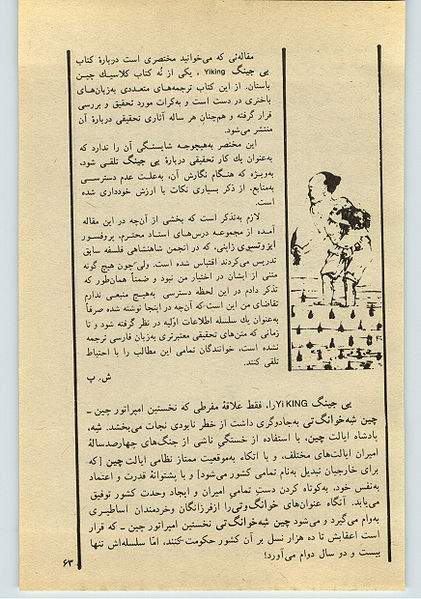 مقاله‌ئی که می‌خوانید مختصری است دربارهٔ کتاب
یی جینگ Yiking ، یکی از نُه کتاب کلاسیـك چیـن
باستان. از این کتاب ترجمه‌های متعددی به‌زبان‌های
باختری در دست است و به‌کرات مورد تحقیق و بررسی
قرار گرفته و هم‌چنان هر ساله آثاری تحقیقی دربارهٔ آن
منتشر می‌شود.
این مختصر به‌هیچوجه شایستگی آن را ندارد که
به‌عنوان یك کار تحقیقی دربارهٔ یی جینگ تلقی شود،
به‌ویـژه که هنـگام نگارش آن، به‌علـت عدم دسترسـی
به‌منابع، از ذکر بسیاری نکات با ارزش خودداری شده
است.
لازم به‌تذکر است که بخشی از آن‌چه در این مقاله
آمـده از مجموعـه درس‌های استـاد محتـرم، پروفسـور
ایزوتسوی ژاپنی، که در انجمن شاهنشاهی فلسفه سابق
تدریس می‌کردند اقتباس شده است. ولی‌چون هیچ گونه
متنی از ایشان در اختیار من نبود و ضمناً همان‌طور که
تذکر دادم در این لحظه دسترسی به‌هیـچ منبعی ندارم
تقاضای من این است‌که آن‌چه در اینجا نوشته شده صرفاً
به‌عنوان یك سلسله اطلاعات اولیه در نظر گرفته شود و تا
زمانی که متن‌های تحقیقی معتبرتری به‌زبان فارسی ترجمه
نشده است، خوانندگان تمامی این مطالب را با احتیـاط
تلقی کنند.
ش. پ
یی جینگ Yi KING را، فقط علاقهٔ مفرطی که نخستین امپراتور چین ــ
چین شِه‌خوانگ‌تی به‌جادوگری داشت از خطر نابودی نجات می‌بخشد. شِه،
پادشاه ایالت چین، با استفاده از خستگی ناشی از جنگ‌های چهارصدسالهٔ
امیران ایالت‌های مختلف، و با اتکاء به‌موقعیت ممتاز نظامی ایالت چین [که
برای خارجیان تبدیل به‌نام تمامی کشور می‌شود] و با پشتوانهٔ قدرت و اعتماد
به‌نفس خود، به‌کوتاه کردن دستِ تمامی امیران و ایجاد وحدت کشور توفیق
می‌یابد. آنگاه عنوان‌های خوانگ‌وتی را ازفرزانگان وخردمندان اساطیـری
به‌وام می‌گیرد و می‌شود چین شِه‌خوانگ‌تی نخستین امپراتور چین ــ که قرار
است اعقابش تا ده هزار نسل بر آن کشور حکومت‌کنند، امّا سلسله‌اش تنها
بیست و دو سال دوام می‌آورد!
۶۳